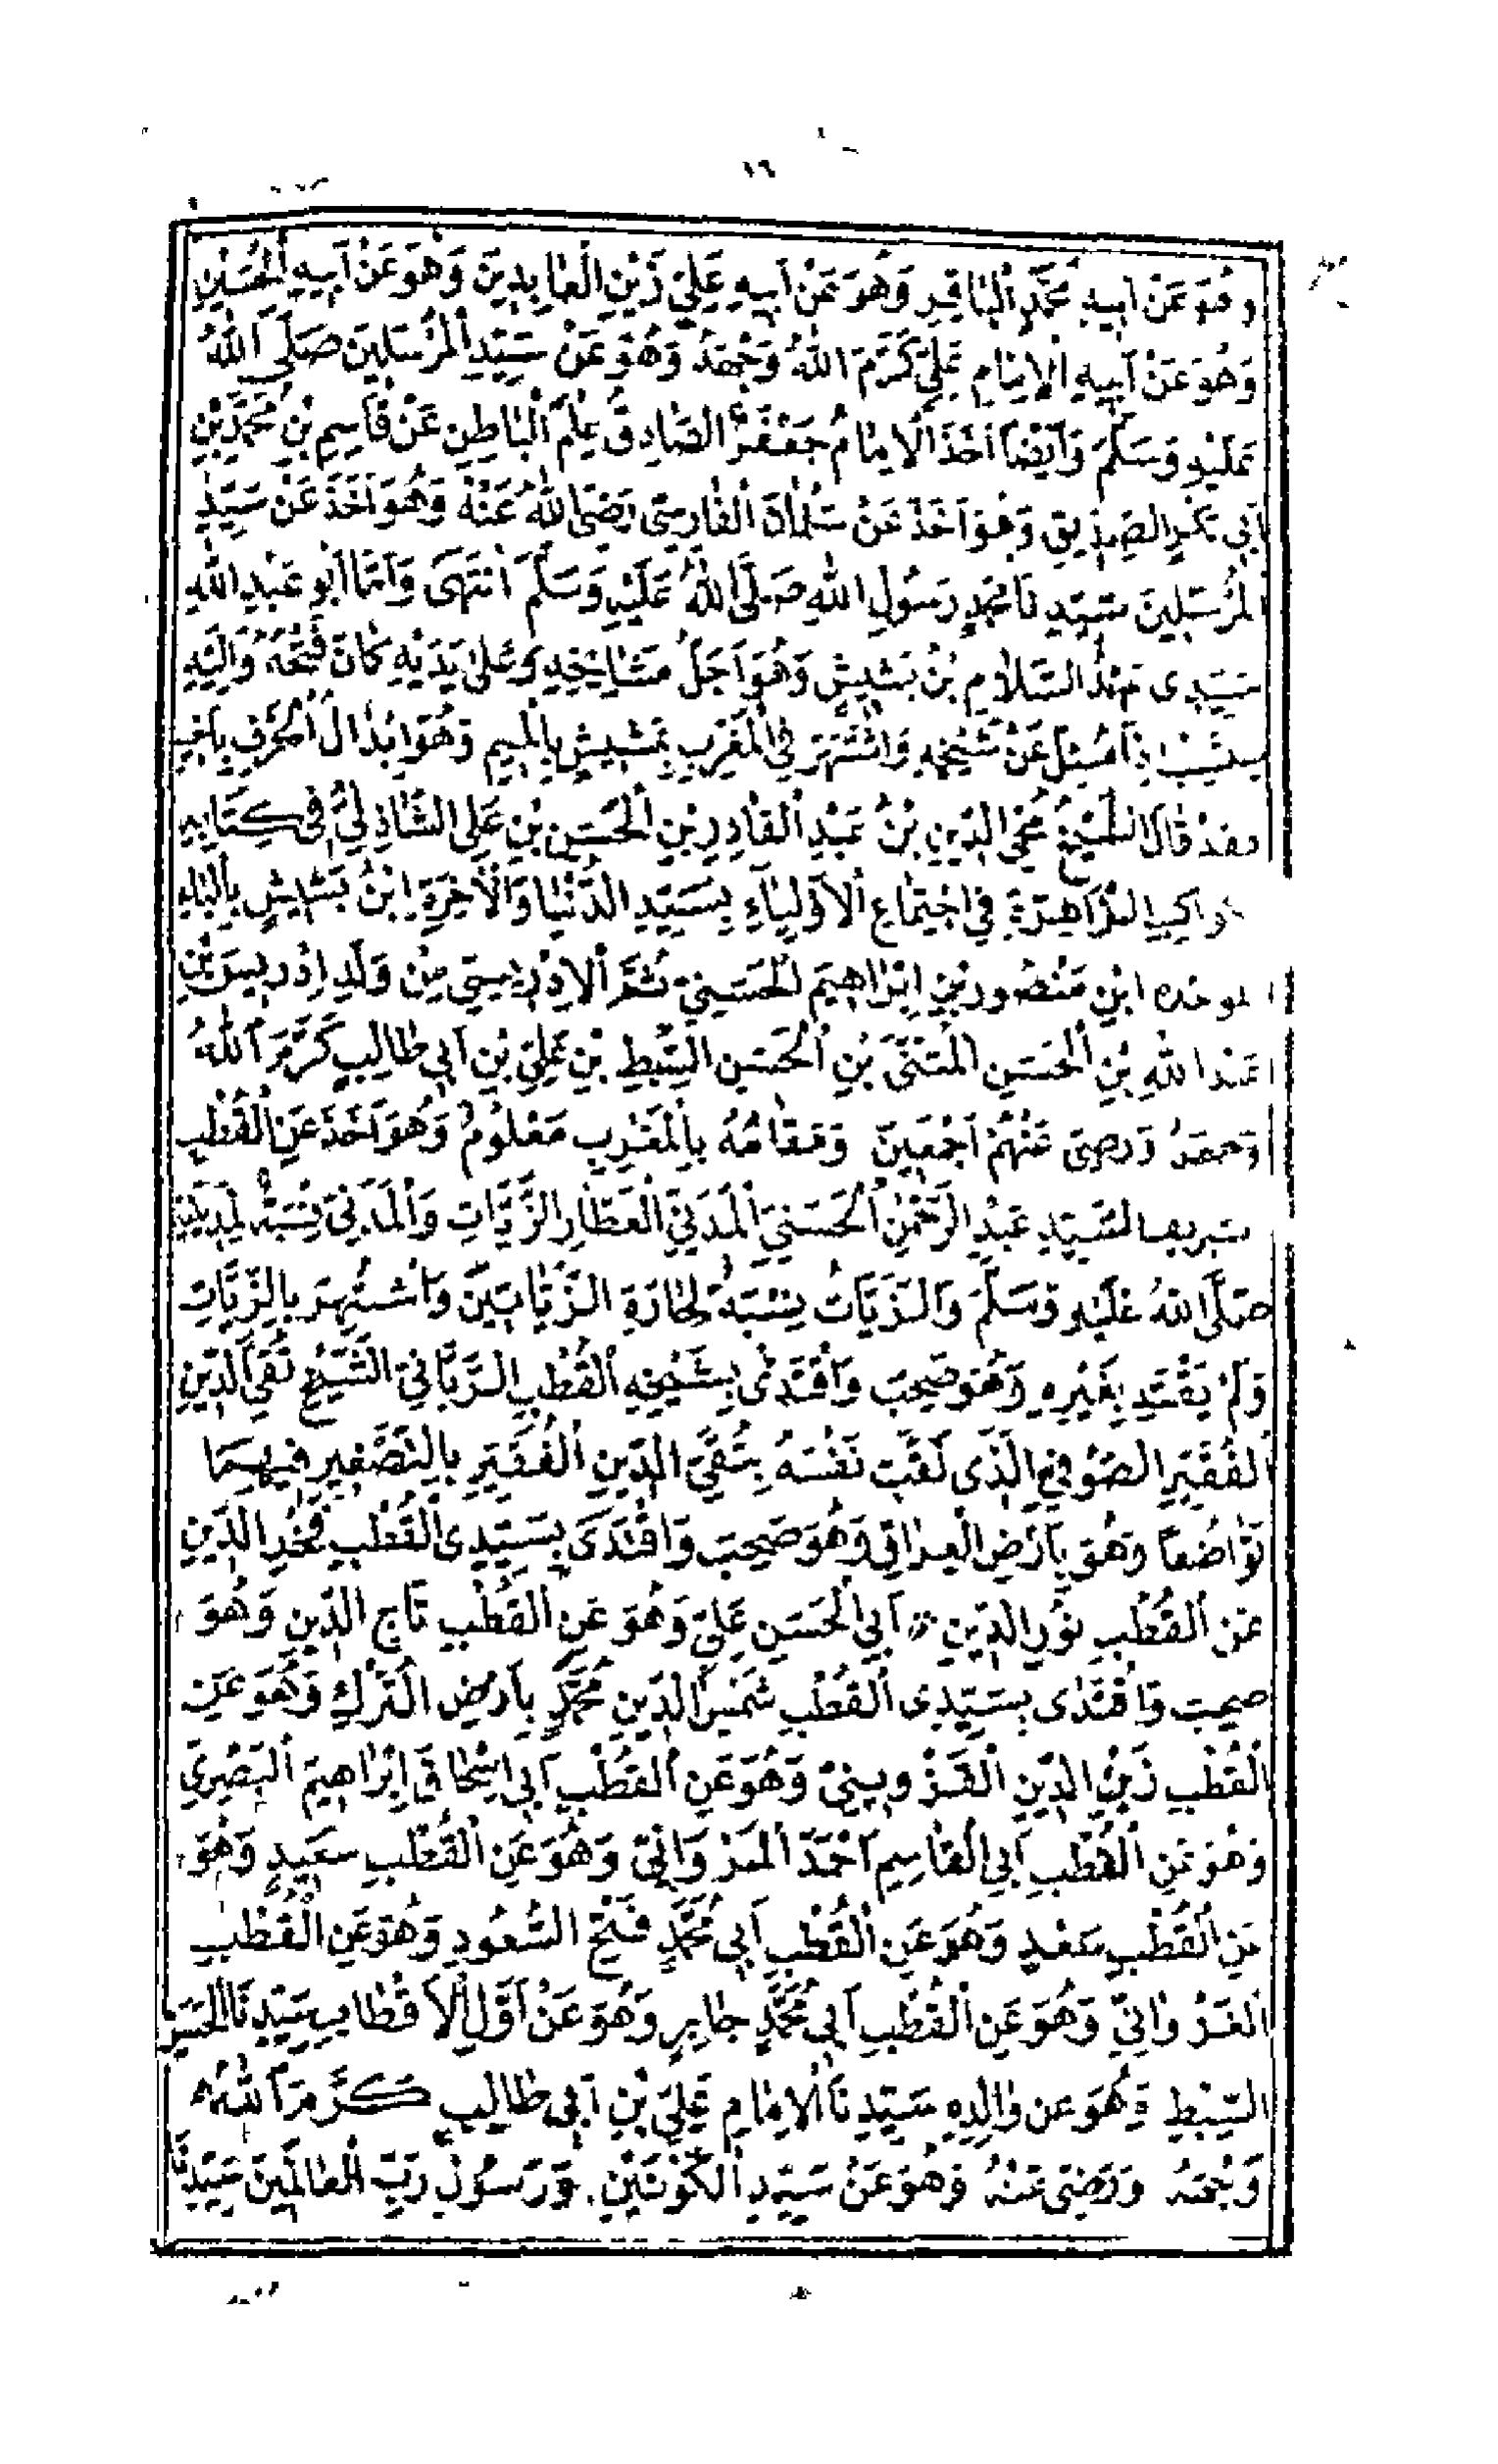 ١٦
وَهُوَ عَنْ اَبِيهِ مُحَمَّدٍ اَلْبَاقِرِ وَهُوَ عَنْ اَبِيهِ عَلِيّ زَيْنِ الْعَابِدِينَ وَهُوَ عَنْ اَبِيهِ اَلْحُسَيْنِ
وَهُوَ عَنْ اَبِيهِ الْاِمَامِ عَلِيّ كَرَّمَ اللهُ وَجْهَهُ وَهُوَ عَنْ سَيِّدِ الْمُرْسَلِينَ صَلَّى اَللهُ
عَلَيْهِ وَسَلَّمَ وَاَيْضًا اَخَذَ الْاِمَامُ جَعْفَرٌ الصَّادِقُ عِلْمَ الْبَاطِنِ عَنْ قَاسِمِ بْنِ مُحَمَّدِ بْنِ
اَبِي بَكْرٍ الصِّدِّيقِ وَهُوَ اَخَذَ عَنْ سَلْمَانَ الْفَارِسِيّ رَضِيَ اللهُ عَنْهُ وَهُوَ اَخَذَ عَنْ سَيِّدِ
الْمُرْسَلِينَ سَيِّدِنَا مُحَمَّدٍ رَسُولِ اللهِ صَلَّى اللهُ عَلَيْهِ وَسَلَّمَ اَنْتَهَى وَاَمَّا اَبُو عَبْدِ اللهِ
سَيِّدِى عَبْدُ السَّلَامِ بْنُ بَشِيشٍ وَهُوَ اَجَلُّ مَشَايِخِهِ وَعَلَى يَدَيْهِ كَانَ فَتْحُهُ وَاِلَيْهِ
اِذَا سُئِلَ عَنْ شَيْخِهِ وَاشْتَهَرَ فِي الْمَغْرِبِ بِمَشِيشٍ بِالْمِيمِ وَهُوَ اِبْدَالُ الْحَرْفِ
فَقَدْ قَالَ الشَّيْخُ مُحْيِ الدِّينِ بْنُ عَبْدِ الْقَادِرِ بْنِ الْحَسَنِ بْنِ عَلِي الشَّاذِلِيُّ فِى كِتَابِهِ
الْكَوَاكِبِ الزَّاهِرَةِ فِي اجْتِمَاعِ الْاَوْلِيَاءِ بِسَيِّدِ الدُّنْيَا وَالْآخِرَةِ ابْنُ بَشِيشٍ بِالْبَاءِ
الموحده ابْنِ مَنْصُورِ بْنِ اِبْرَاهِيمَ الْحَسَنِيّ ثُمَّ الْاِدْرِيسِيّ مِنْ وَلَدِ اِدْرِيسَ بْنِ
عَبْدِ اللهِ بْنِ الْحَسَنِ الْمُثَنَّى بْنِ الْحَسَنِ السِّبْطِ بْنِ عَلِيّ بْنِ اَبِي طَالِبٍ كَرَّمَ اَللهُ
وَجْهَهُ وَرَضِىَ عَنْهُمْ اَجْمَعِينَ وَمَقَامُهُ بِالْمَغْرِبِ مَعْلُومٌ وَهُوَ اَخَذَ عَنِ الْقُطْبِ
الشريف السَّيِّدِ عَبْدِ الرَّحْمٰنِ الْحَسَنِيّ الْمَدَنِيّ الْعَطَّارِ الزَّيَّاتِ وَالْمَدَنِيّ نِسْبَةً لِمَدِينَتِهِ
صَلَّى اللهُ عَلَيْهِ وَسَلَّمَ وَالزَّيَّاتُ نِسْبَةً لِحَارَةِ الزَّيَّاتِينَ وَاشْتُهِرَ بِالزَّيَّاتِ
وَلَمْ يَقْتَدِ بِغَيْرِهِ وَهُوَ صَحِبَ وَاَقْتَدَى بِشَيْخِهِ الْقُطْبِ الرَّبَّانِيّ الشَّيْخِ تُقَيّ الدِّينِ
الْفُقَيْرِ الصُّوفِيِّ الَّذِى لَقَّبَ نَفْسَهُ بِتُقَيّ الدِّينِ الْفُقَيْرِ بِالتَّصْغِيرِ فِيهِمَا
تَوَاضُعًا وَهُوَ بِاَرْضِ الْعِرَاقِ وَهُوَ صَحِبَ وَاقْتَدَى بِسَيِّدِى الْقُطْبِ فَخْرِ الدِّينِ
عَنِ الْقُطْبِ نُورِ الدِّينِ اَبِي الْحَسَنِ عَلِيّ وَهُوَ عَنِ الْقُطْبِ تَاجِ الدِّينِ وَهُوَ
صحب وَاقْتَدَى بِسَيِّدِى الْقُطْبِ شَمْسِ الدِّينِ مُحَمَّدٍ بِاَرْضِ التُّرْكِ وَهُوَ عَنِ
الْقُطْبِ زَيْنِ الدِّينِ الْقَزْوِينِيّ وَهُوَ عَنِ الْقُطْبِ اَبِي اِسْحَاقَ اِبْرَاهِيمَ الْبَصْرِيّ
وَهُوَ عَنِ الْقُطْبِ اَبِي الْقَاسِمِ اَحْمَدَ الْمَرْوَانِيّ وَهُوَ عَنِ الْقُطْبِ سَعِيدٍ وَهُوَ
عَنِ الْقُطْبِ سَعْدٍ وَهُوَ عَنِ الْقُطْبِ اَبِي مُحَمَّدٍ فَتْحِ السُّعُودِ وَهُوَ عَنِ الْقُطْبِ
الْغَزْوَانِيّ وَهُوَ عَنِ الْقُطْبِ اَبِي مُحَمَّدٍ جَابِرٍ وَهُوَ عَنْ اَوَّلِ الْاَقْطَابِ سَيِّدِنَا الْحَسَنِ
السِّبْطِ وَهُوَ عَنْ وَالِدِهِ سَيِّدِنَا الْاِمَامِ عَلِيّ بْنِ اَبِي طَالِبٍ كَرَّمَ اَللهُ
وَجْهَهُ وَرَضِىَ عَنْهُ وَهُوَ عَنْ سَيِّدِ الْكَوْنَيْنِ وَرَسُولِ رَبِّ الْعَالَمِينَ سَيِّدِنَا